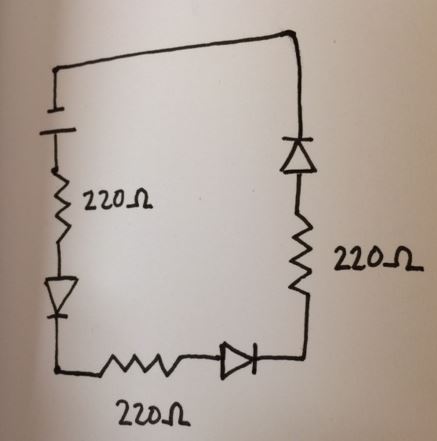 220Ω
220Ω
220Ω